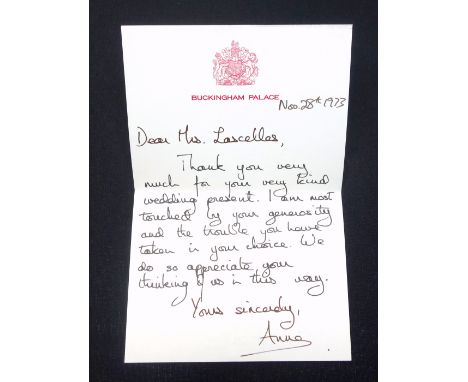 BUCKINGHAM PALACE
Nov. 28th 1973
Dear Mrs. Lascelles,
Thank you very
much for your very kind
wedding present. I am most
touched by your generosity
and the trouble you have
taken in your choice. We
do so appreciate your
thinking of us in this way.
Yours sincerely,
Anne